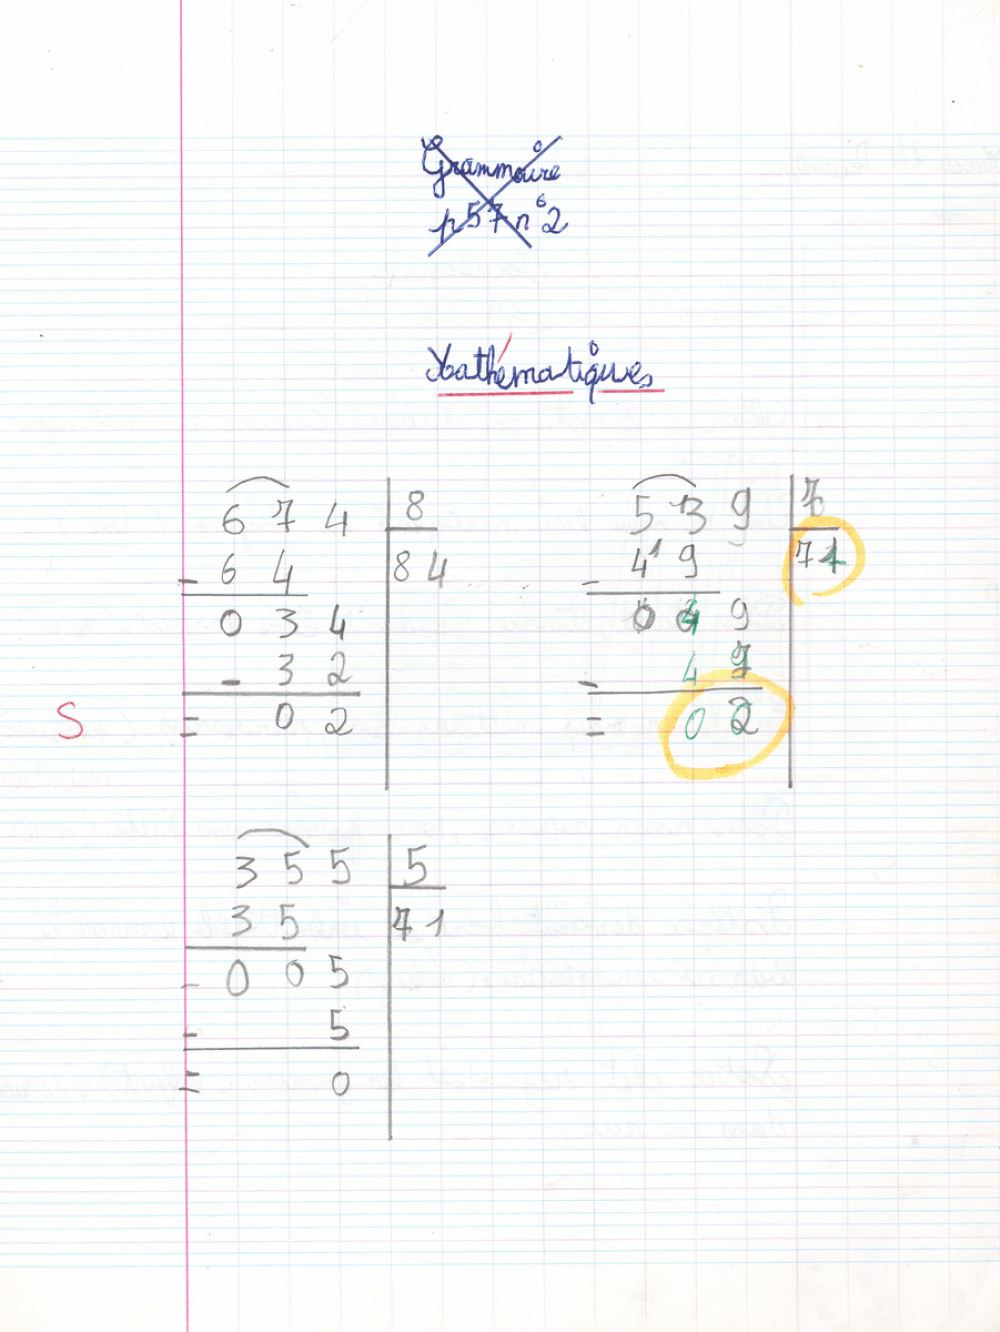 Grammaire
p 57 n° 2
Mathématiques
6 7 4 | 8
- 6 4 | 8 4
0 3 4
- 3 2
= 0 2
S
5 3 9 | 7
- 4 9 | 7
0 4 9
- 4 9
= 0
3 5 5 | 5
3 5 | 7 1
- 0 0 5
- 5
= 0